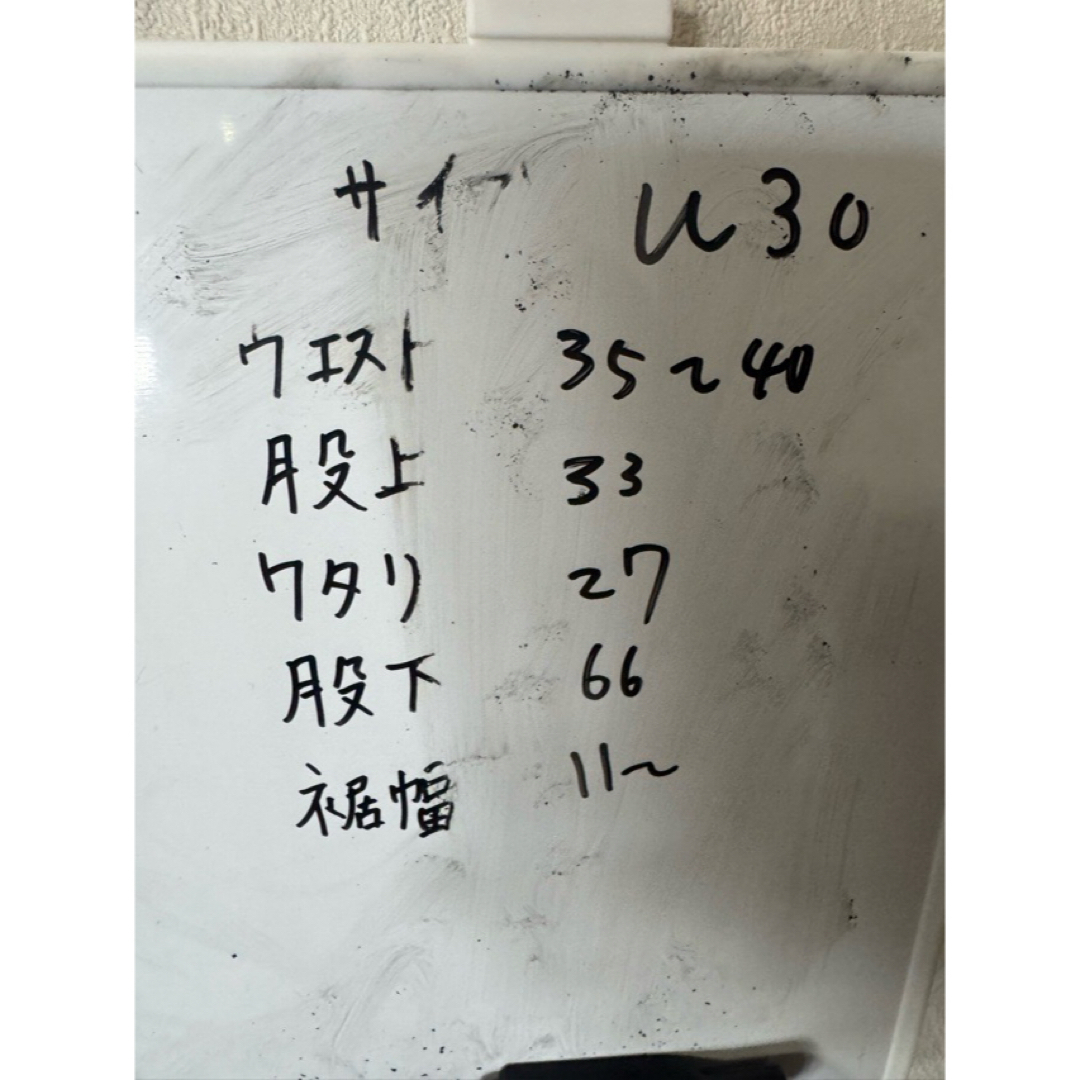 サイ U30
ウエスト 35~40
股上 33
ワタリ 27
股下 66
裾幅 11~